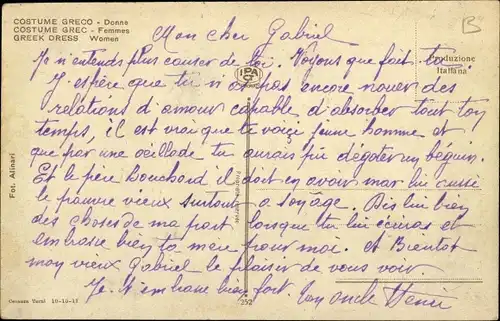 COSTUME GRECO - Donne
COSTUME GREC - Femmes
GREEK DRESS Women
B
Mon cher Gabriel
Je n'entends plus causer de toi. Voyons que fait tu
J'espère que tu n'as pas encore nouer des
relations d'amour capable d'absorber tout ton
temps, il est vrai que te voici jeune homme et
que par une oeillade tu aurais pu dégoter un béguin.
Et le père Bouchard il doit en avoir mar lui aussi
le pauvre vieux surtout a son âge. Dis lui bien
des choses de ma part lorsque tu lui écriras et
embrasse bien ta mère pour moi. et Bientot
mon vieux Gabriel le plaisir de vous voir.
Je t'embrasse bien fort. ton oncle Henri
IPA
CT
Produzione
Italiana
Fot. Alinari
Cesnura Terni 10-10-15
252